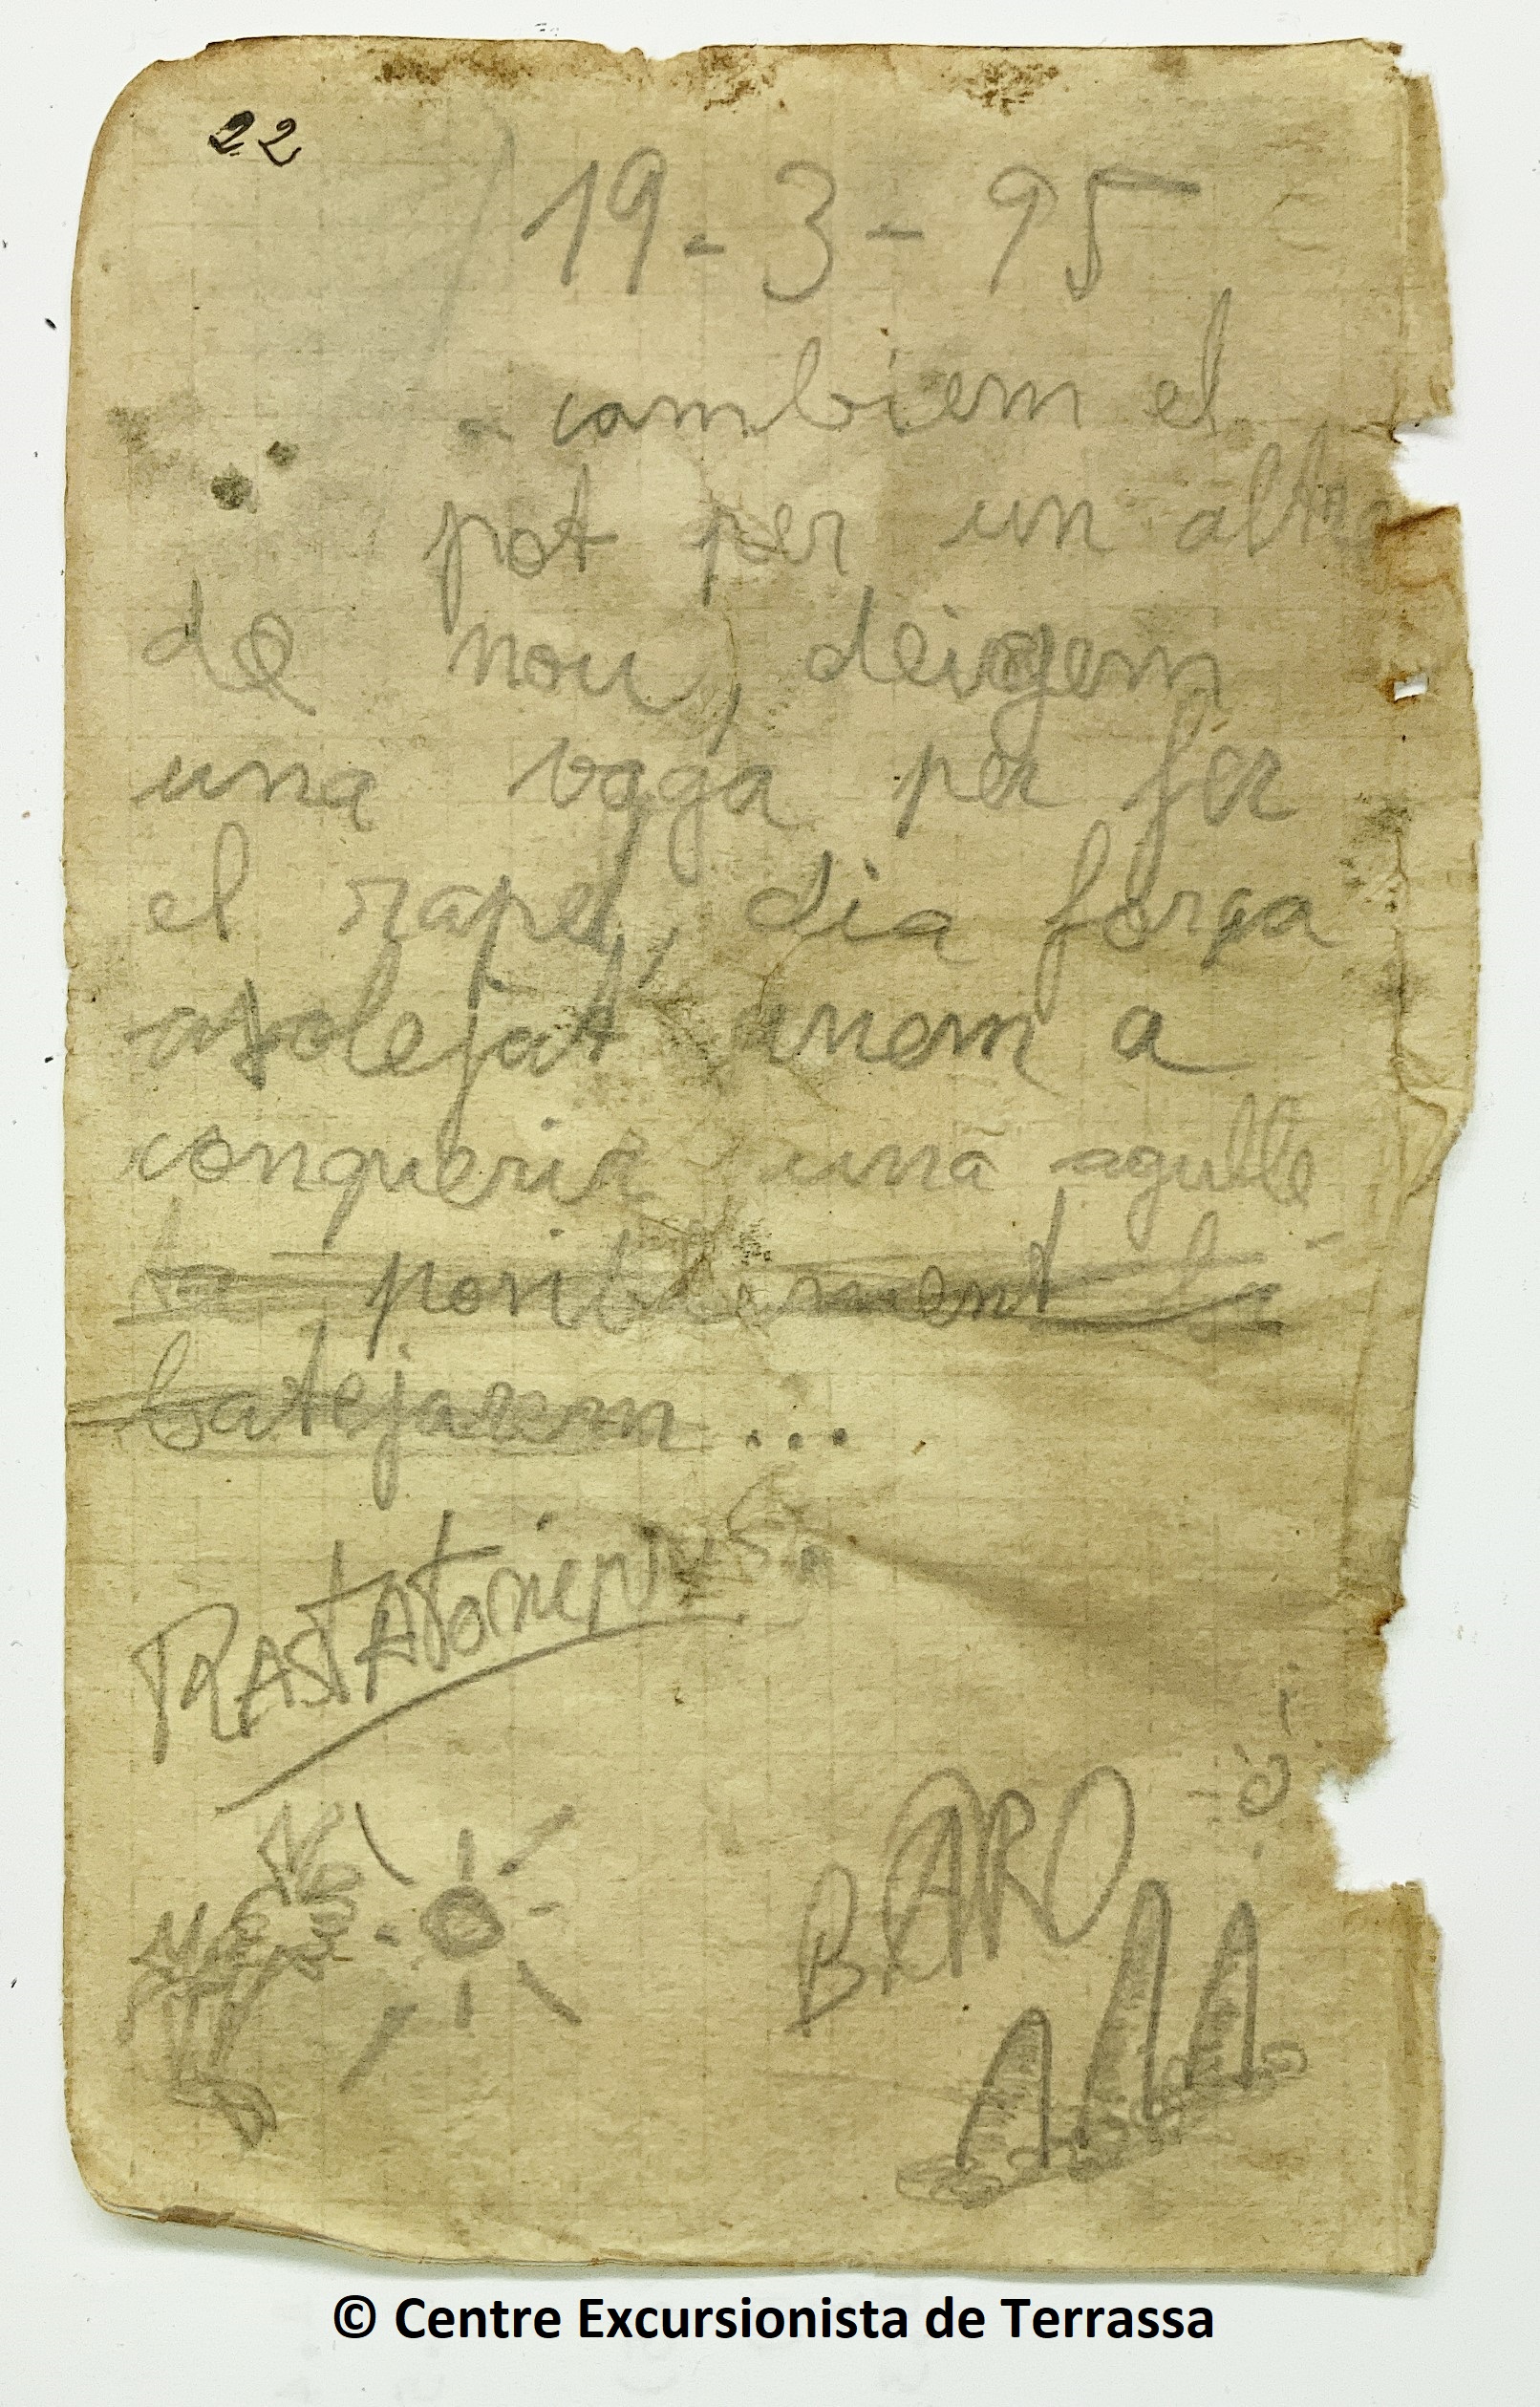 22
19-3-95
- cambiem el
pot per un altre
de nou, deixem
una baga per fer
el rapel, dia força
assolejat anem a
conquerir una agulla
posiblement la
batejarem ...
BARO
© Centre Excursionista de Terrassa